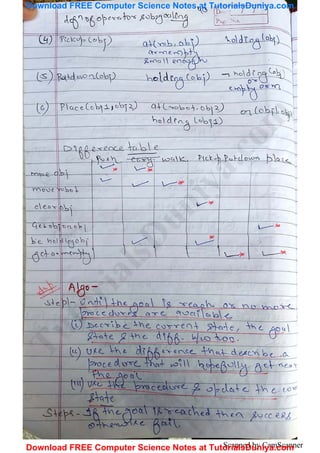 Download FREE Computer Science Notes at TutorialsDuniya.com
defn of operator subgoaling
(4) Pickup(obj) at(rb, obj) holding(obj)
armempty
small enough
(5) Putdown(obj) holding(obj) ¬holding(obj)
or
empty arm
(6) Place(obj1, obj2) at(robot, obj2) on(obj1, obj2)
holding(obj1)
Difference table
Push carry walk Pickup Putdown place
move obj ✓* ✓*
move robot ✓ ✓*
clear obj ✓*
get obj on obj ✓*
be holding obj ✓*
get armempty ✓* ✓*
Imp. Algo-
Step1- Until the goal is reach or no more
procedures are available
(i) Describe the current state, the goal
state & the diff. b/w too.
(ii) Use the difference that describe a
procedure that will hopefully get near
the goal.
(iii) Use the procedure & update the
state
Step2- If the goal is reached then success
otherwise fail.
Scanned by CamScanner
Download FREE Computer Science Notes at TutorialsDuniya.com